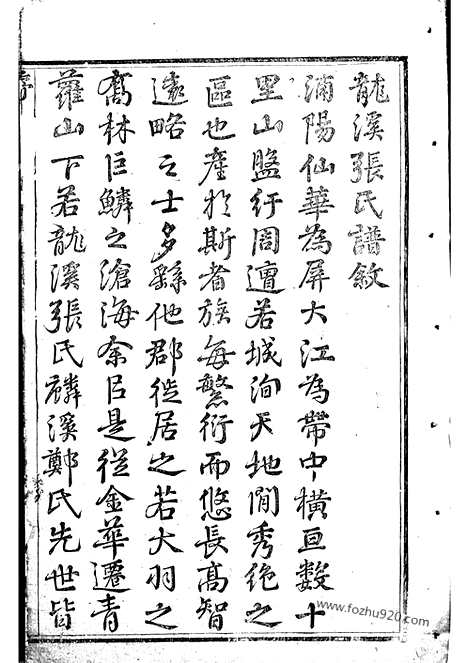 龍溪張氏譜敘
浦陽仙華為屏大江為帶中橫亘數十
里山盤紆周遭若城洵天地間秀絕之
區也產於斯者族每繁衍而悠長高智
遠略之士多繇他郡徙居之若大羽之
喬林巨鱗之滄海余㠯是從金華遷青
蘿山下若龍溪張氏麟溪鄭氏先世皆
序
www.fozhu920.com